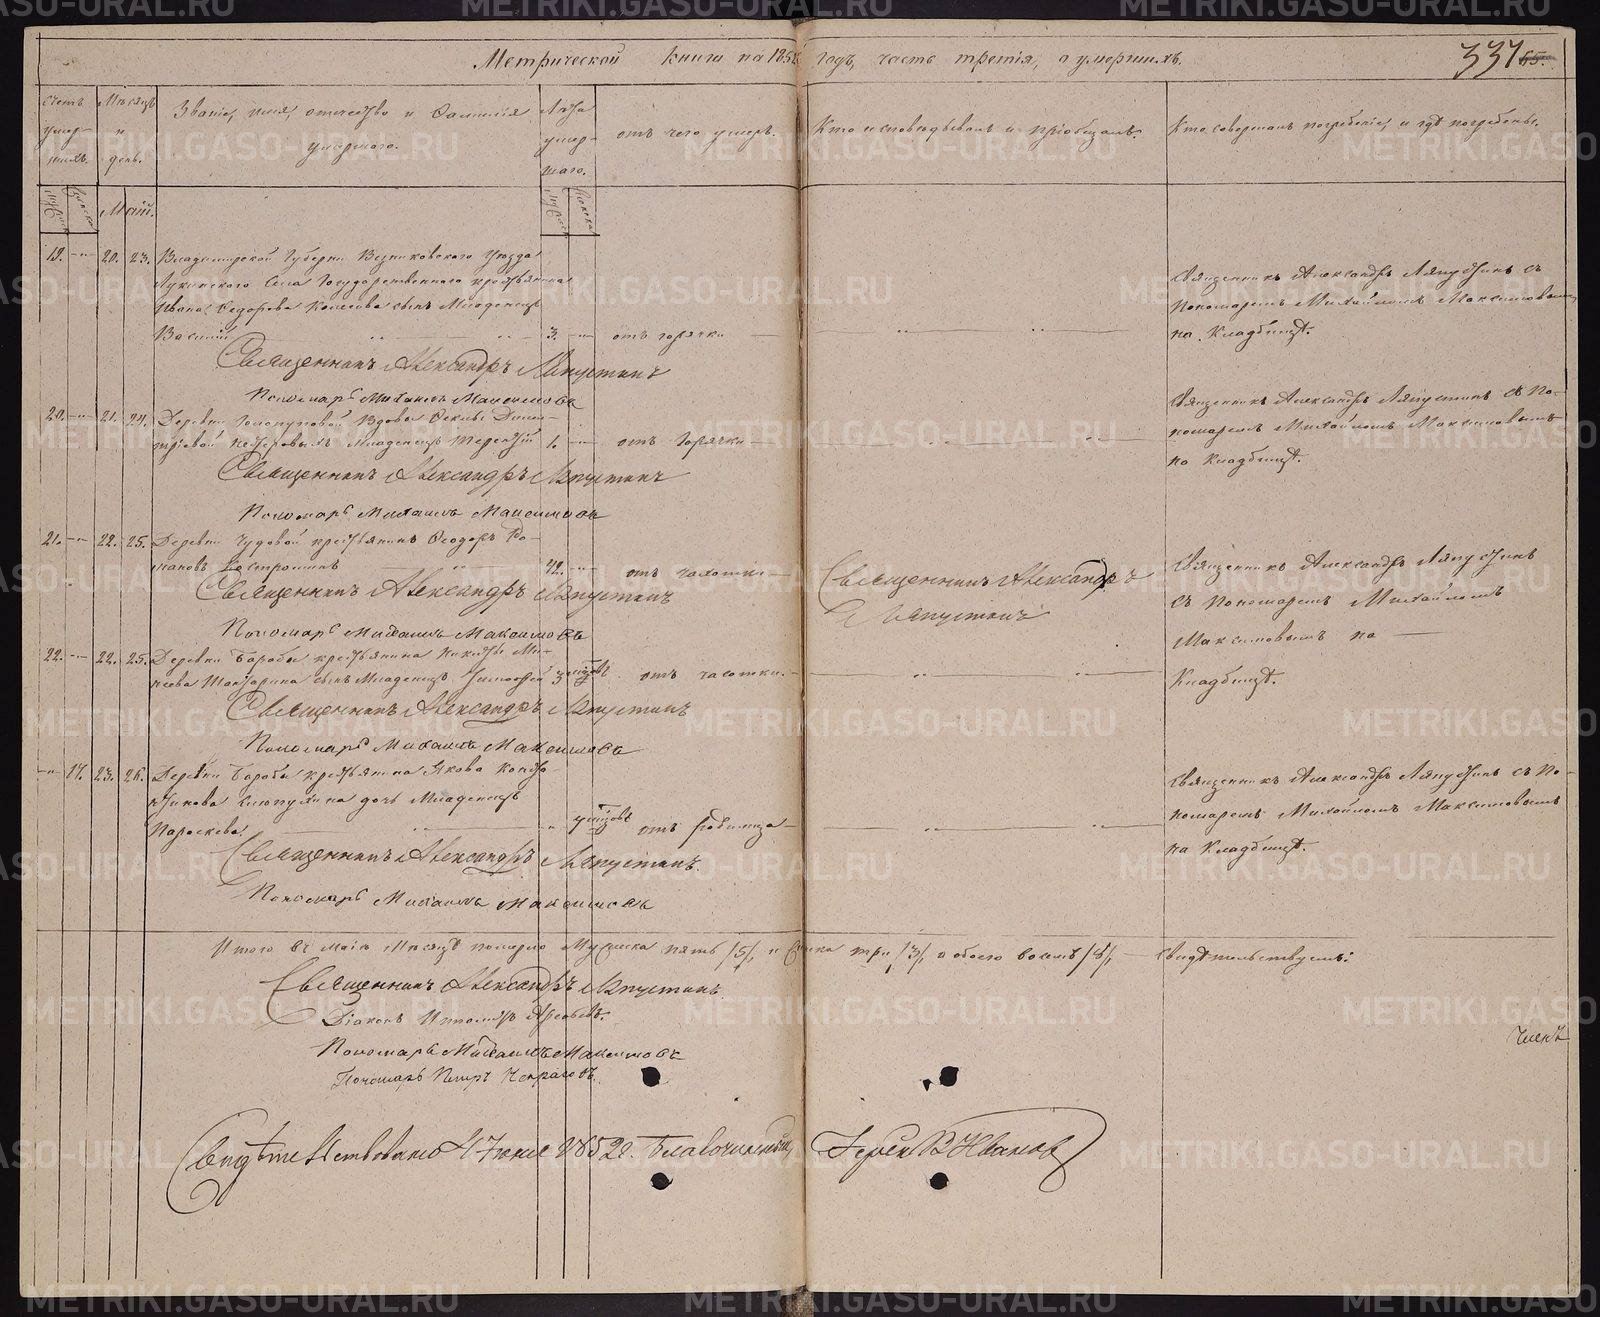 Метрической книги на 1852 годъ, часть третія, о умершихъ.
337 65.
Счетъ умер-шихъ.
Мѣсяцъ и день.
Званіе, имя, отчество и фамилія умершаго.
Лѣта умер-шаго.
отъ чего умеръ.
Кто исповѣдывалъ и пріобщалъ.
Кто совершалъ погребеніе, и гдѣ погребены.
Май.
19. -"- 20. 23. Владимирской Губерніи Вязниковскаго Уѣзда
Села Государственнаго крестьянина
Ивана Федорова сынъ Младенецъ
Василій 3. -"- отъ горячки
Священникъ Александръ Ляпустинъ съ
Пономаремъ Михайломъ Максимовымъ
на Кладбищѣ.
Священникъ Александръ Ляпустинъ
Пономарь Михаилъ Максимовъ
20. -"- 21. 24. Деревни Вдовы Феклы Дими-
тріевой Младенецъ Терентій 1. -"- отъ горячки
Священникъ Александръ Ляпустинъ съ По-
номаремъ Михайломъ Максимовымъ
на Кладбищѣ.
Священникъ Александръ Ляпустинъ
Пономарь Михаилъ Максимовъ
21. -"- 22. 25. Деревни Чудовой крестьянинъ Феодоръ Ро-
мановъ Костроминъ 42. -"- отъ чахотки
Священникъ Александръ
Ляпустинъ
Священникъ Александръ Ляпустинъ
съ Пономаремъ Михайломъ
Максимовымъ на
Кладбищѣ.
Священникъ Александръ Ляпустинъ
Пономарь Михаилъ Максимовъ
22. -"- 22. 25. Деревни Боровы крестьянина Никиты Ми-
сынъ Младенецъ Тимофей 3 отъ чахотки.
Священникъ Александръ Ляпустинъ
Пономарь Михаилъ Максимовъ
-"- 17. 23. 26. Деревни Боровы крестьянина Якова
дочь Младенецъ
Параскева. отъ родимца
Священникъ Александръ Ляпустинъ съ По-
номаремъ Михайломъ Максимовымъ
на Кладбищѣ.
Священникъ Александръ Ляпустинъ.
Пономарь Михаилъ Максимовъ
Итого въ маѣ Мѣсяцѣ померло Мужеска пять /5/, и Женска три /3/, а обоего восемь /8/, Свидѣтельствуемъ:
Священникъ Александръ Ляпустинъ.
Діаконъ
Пономарь Михаилъ Максимовъ
Пономарь Петръ
Членъ
Свидѣтельствовано 4 Іюня 1852 г. Благочинный, Іерей В Ивановъ
METRIKI.GASO-URAL.RU